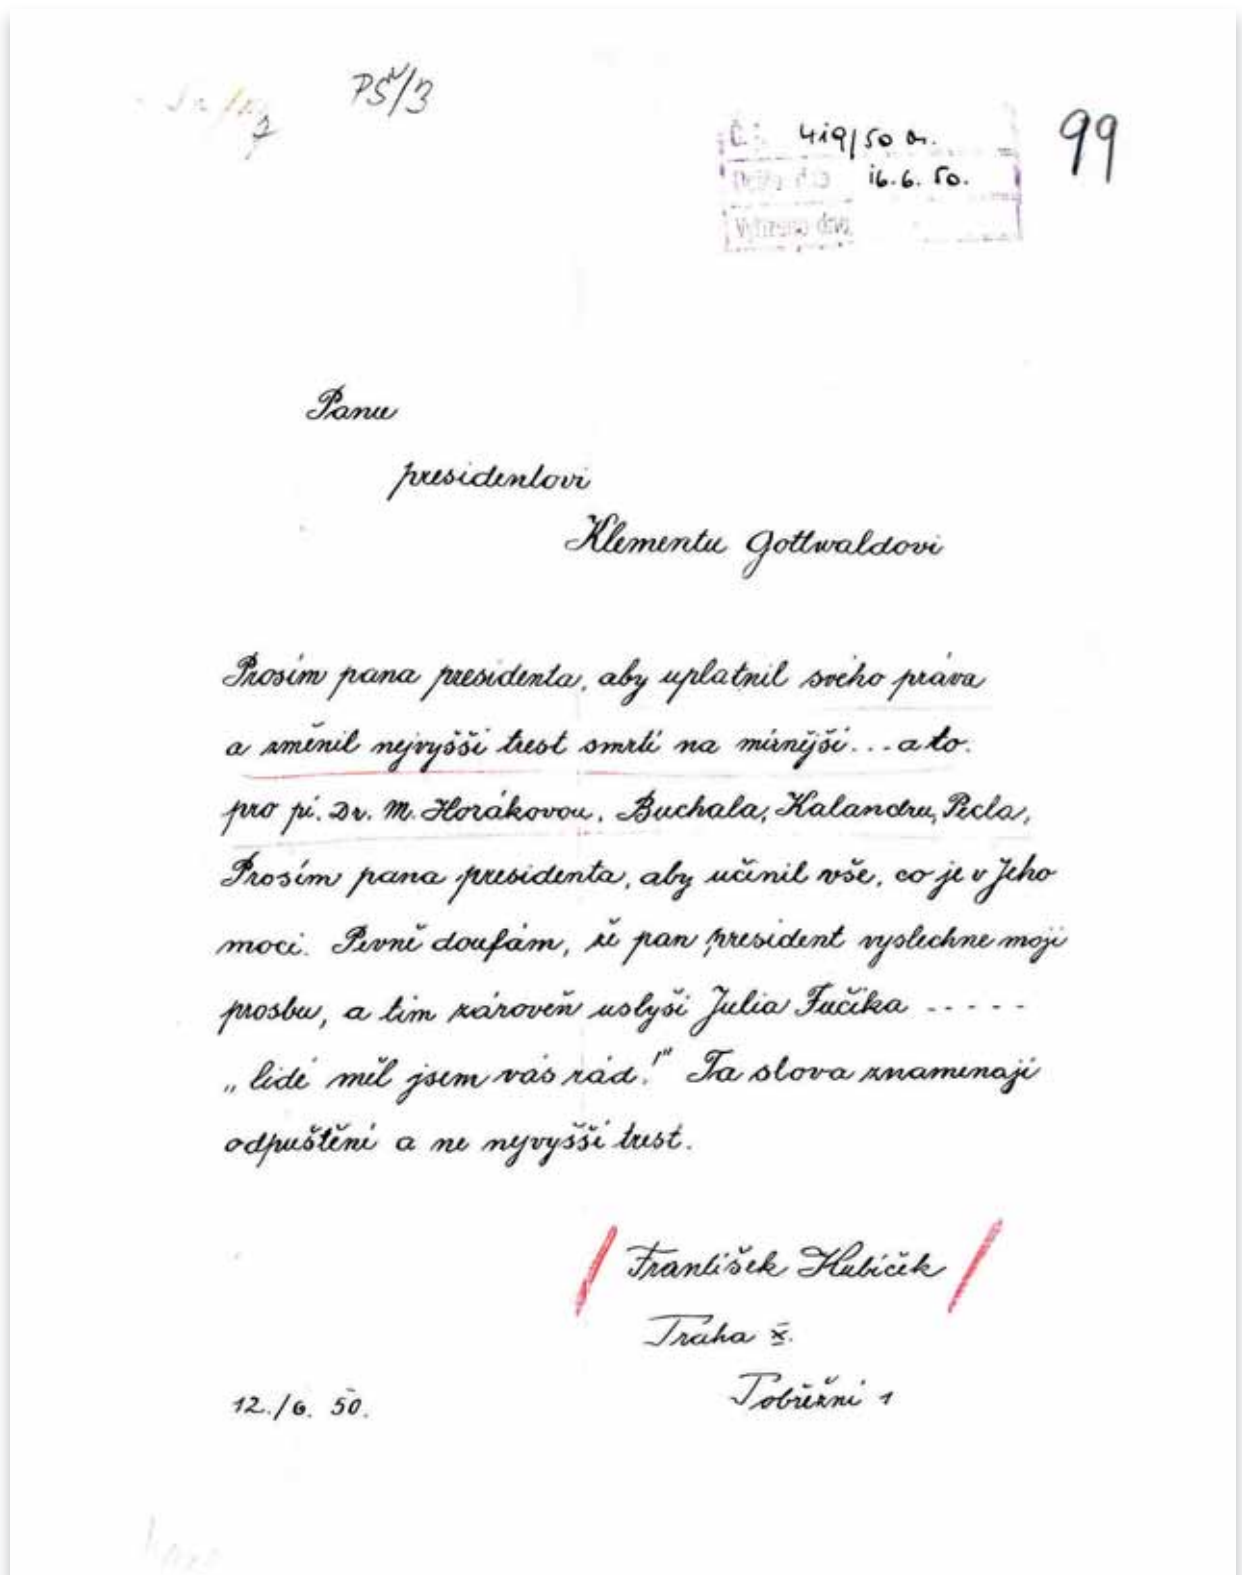 PSN/3
Č.: 419/50 m.
Došlo dne 16.6.50.
Vyřízeno dne
99
Panu
presidentovi
Klementu Gottwaldovi
Prosím pana presidenta, aby uplatnil svého práva
a změnil nejvyšší trest smrti na mírnější... a to:
pro pí. Dr. M. Horákovou, Buchala, Kalandru, Pecla,
Prosím pana presidenta, aby učinil vše, co je v Jeho
moci. Pevně doufám, že pan president vyslechne moji
prosbu, a tím zároveň uslyší Julia Fučíka -----
„lidé měl jsem vás rád!" Ta slova znamenají
odpuštění a ne nejvyšší trest.
František Hubiček
Praha X.
12./6. 50.
Pobřežní 1